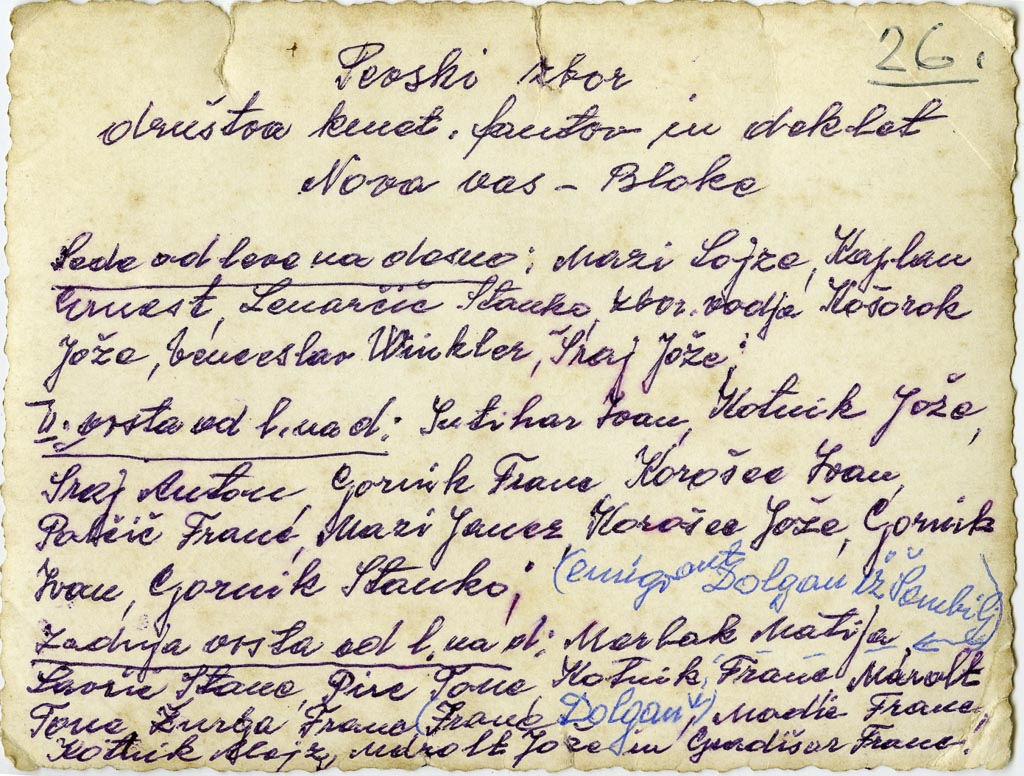 26.
Pevski zbor
društva kmet. fantov in deklet
Nova vas - Bloke
Sede od leve na desno: Mazi Lojze, Kaplan
Ernest, Lenarčič Stanko, zbor. vodja Košorok
Jože, Venceslav Winkler, Šraj Jože;
II. vrsta od l. na d.: Intihar Ivan, Kotnik Jože,
Sraj Anton, Gornik Franc Korošec Ivan,
Franc, Mazi Janez, Korošec Jože, Gornik
Ivan, Gornik Stanko;
(emigrant Dolgan iz Šembilj)
Zadnja vrsta od l. na d: Matija,
Lavrič Stane, Pirc Tone, Kotnik Franc Marolt
Tone Zurga Franc (Franc Dolgan), Modic Franc,
Kotnik Alojz, Marolt Jože in Gradišar Franc.